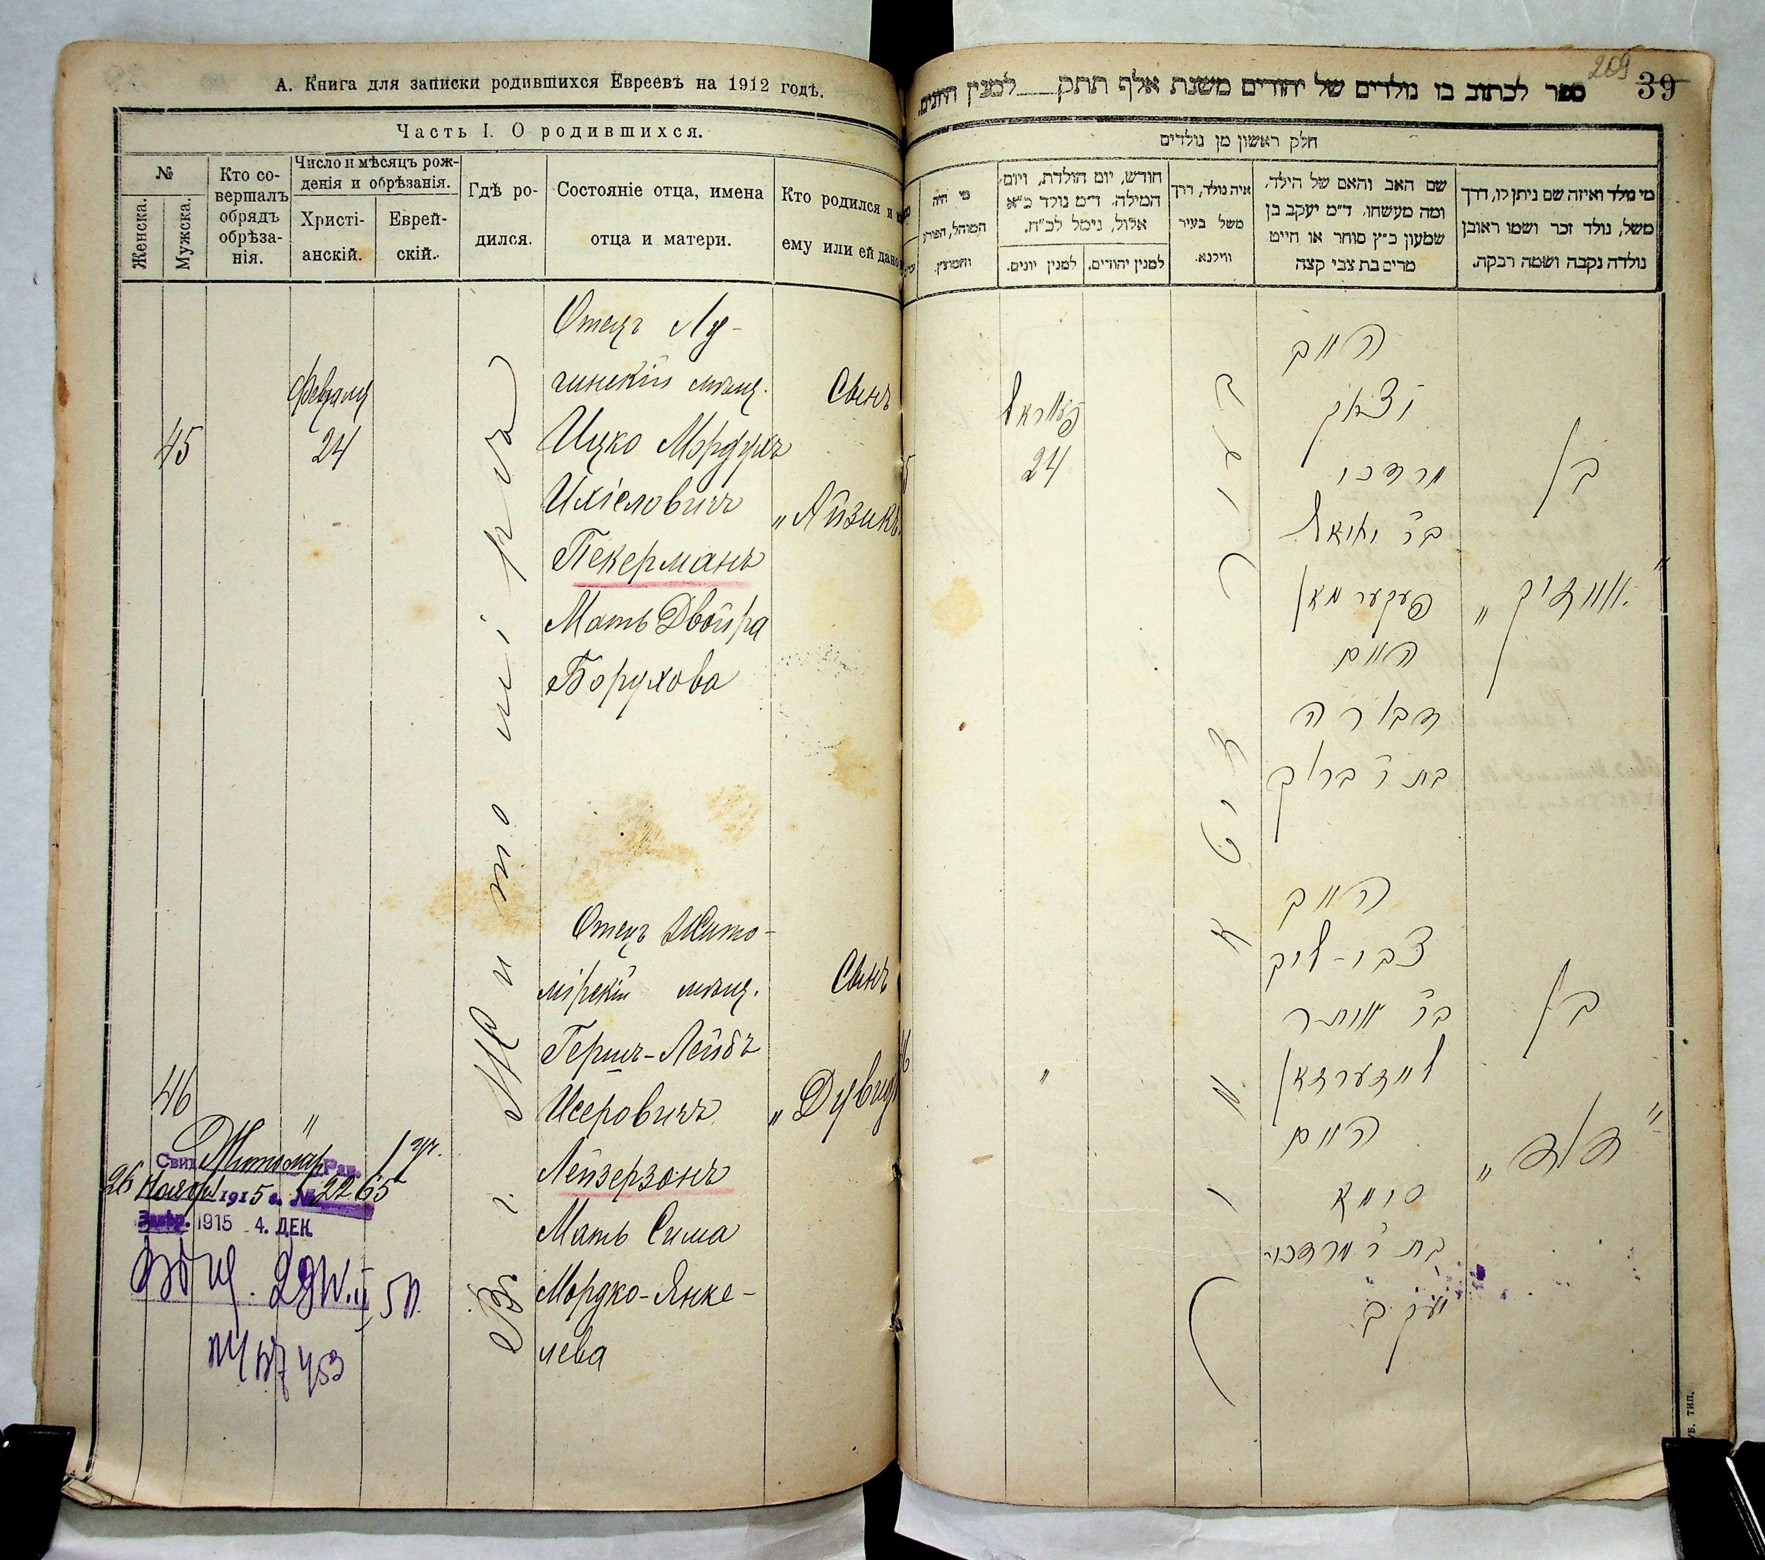 А. Книга для записки родившихся Евреевъ на 1912 годъ.
Часть I. О родившихся.
№
Женска.
Мужска.
Кто со-
вершалъ
обрядъ
обрѣза-
нія.
Число и мѣсяцъ рож-
денія и обрѣзанія.
Христі-
анскій.
Еврей-
скій.
Гдѣ ро-
дился.
Состояніе отца, имена
отца и матери.
Кто родился и
ему или ей дано
45
Февраля
24
Въ г. Житомірѣ
Отецъ Лу-
гинскій мѣщ.
Ицко Мордухъ
Ихіеловичъ
Пекерманъ
Мать Двойра
Борухова
Сынъ
„Айзикъ
46
"
Отецъ Жито-
мірскій мѣщ.
Гершъ-Лейбъ
Исеровичъ
Лейзерзонъ
Мать Сима
Мордко-Янке-
лева
Сынъ
„Дувидъ
Свид. Житомір. Рав.
26 Ноября 1915 г. № 2265
1915 4. ДЕК.
209
39
ספר לכתוב בו נולדים של יהודים משנת אלף תתק למנין היונים.
חלק ראשון מן נולדים
מי נולד ואיזה שם ניתן לו, דרך
משל, נולד זכר ושמו ראובן
נולדה נקבה ושמה רבקה.
שם האב והאם של הילד,
ומה מעשהו, ד״מ יעקב בן
שמעון כ״ץ סוחר או חייט
מרים בת צבי קצה
איה נולד, דרך
משל בעיר
ווילנא.
חודש, יום הולדת, ויום
המילה. ד״מ נולד כ״א
אלול, נימל לכ״ח.
למנין יהודים.
למנין יונים.
מי היה
המוהל, הפורע
והמוצץ.
בן
„אייזיק“
האב
יצחק
מרדכי
ב״ר יחיאל
פעקערמאן
האם
דבורה
בת ר׳ ברוך
בעיר זיטאמיר
פעווראל
24
בן
„דוד“
האב
צבי-ליב
ב״ר איסר
לייזערזאן
האם
סימא
בת ר׳ מרדכי
יעקב
"